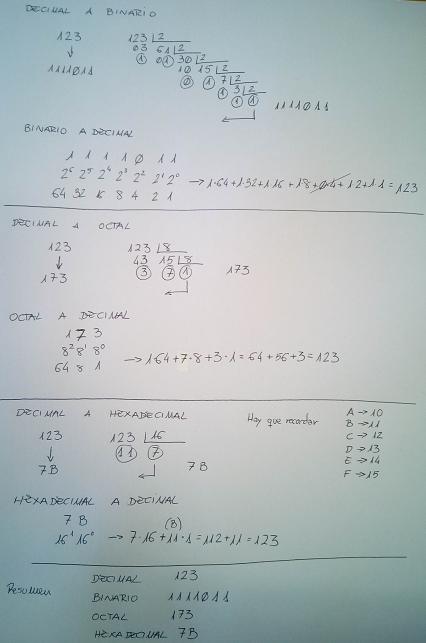 DECIMAL A BINARIO
123 123 |2
↓ 03 61 |2
1111011 1 01 30 |2
10 15 |2
0 1 7 |2
1 3 |2
1 1
1111011
BINARIO A DECIMAL
1 1 1 1 0 1 1
2⁶ 2⁵ 2⁴ 2³ 2² 2¹ 2⁰ → 1·64+1·32+1·16+1·8+0·4+1·2+1·1=123
64 32 16 8 4 2 1
DECIMAL A OCTAL
123 123 |8
↓ 43 15 |8
173 3 7 1 173
OCTAL A DECIMAL
1 7 3
8² 8¹ 8⁰ → 1·64+7·8+3·1=64+56+3=123
64 8 1
DECIMAL A HEXADECIMAL Hay que recordar A→10
B→11
123 123 |16 C→12
↓ 11 7 D→13
7B 7B E→14
F→15
HEXADECIMAL A DECIMAL
7 B (B)
16¹ 16⁰ → 7·16+11·1=112+11=123
Resumen
DECIMAL 123
BINARIO 1111011
OCTAL 173
HEXADECIMAL 7B